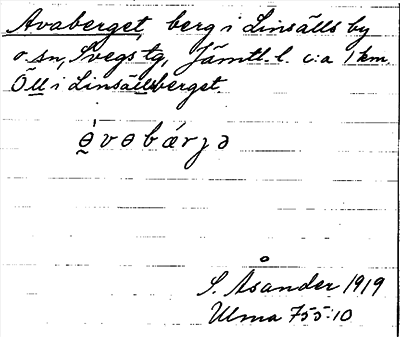 Avaberget, berg i Linsälls by
o. sn, Svegs tg, Jämtl. l. c:a 1 km.
Öll i Linsällberget.
S. Åsander 1919
Ulma 755:10